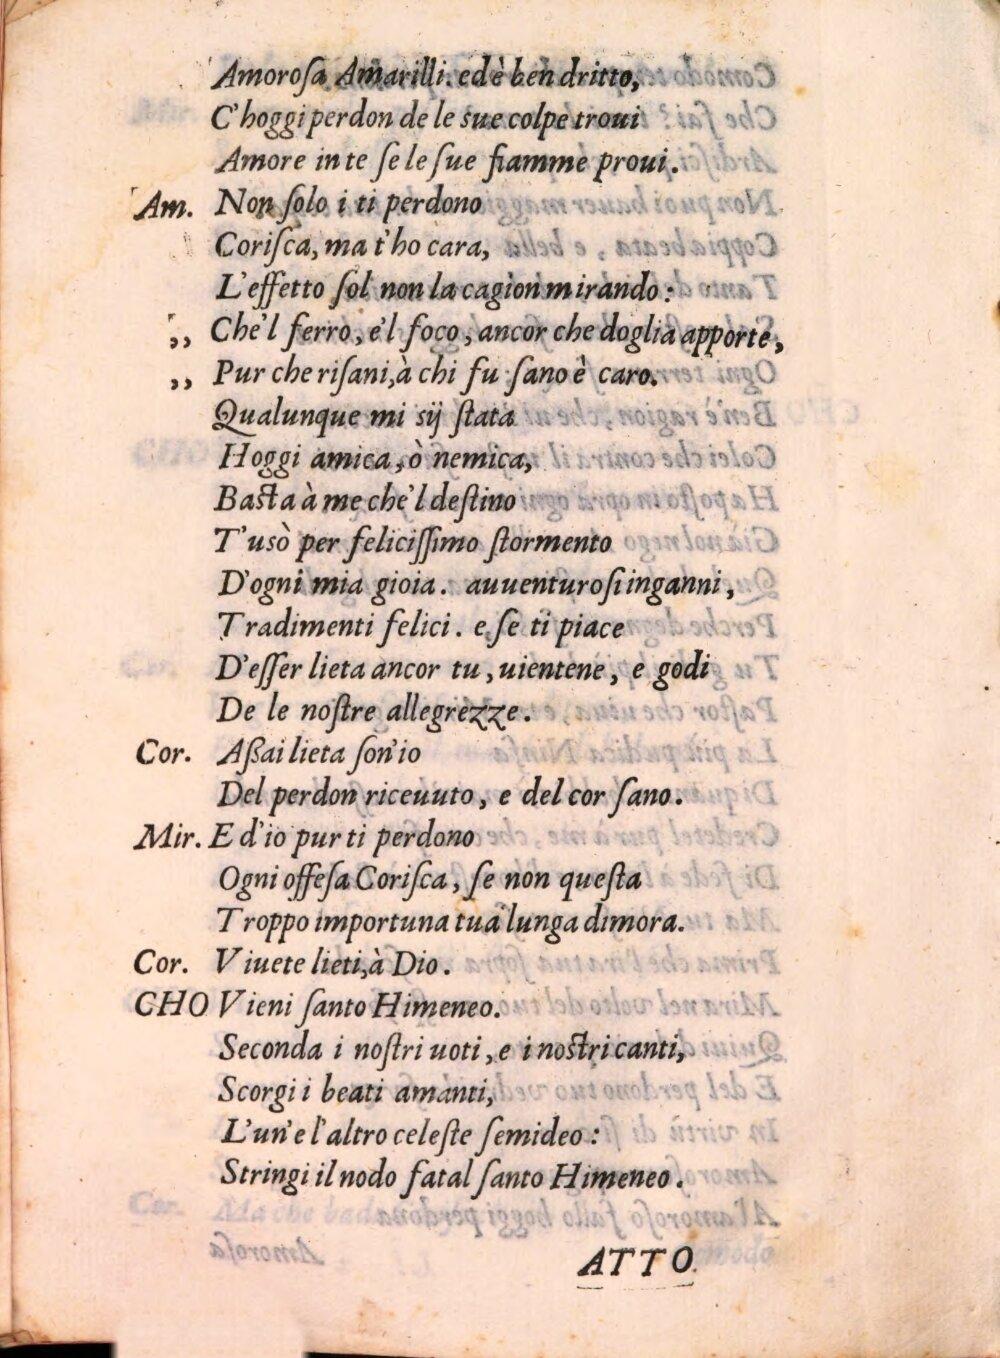 Amoroſa Amarilli. ed è ben dritto,
C'hoggi perdon de le sue colpe troui
Amore in te ſe le ſue fiamme proui.
Am. Non ſolo i ti perdono
Coriſca, ma t'ho cara,
L'effetto ſol non la cagion mirando:
,, Che'l ferro, e'l foco, ancor che doglia apporte,
,, Pur che riſani, à chi fu ſano è caro.
Qualunque mi sij ſtata
Hoggi amica, ò nemica,
Baſta à me che'l deſtino
T'usò per feliciſſimo ſtormento
D'ogni mia gioia. auuenturoſi inganni,
Tradimenti felici. e ſe ti piace
D'eſſer lieta ancor tu, uientene, e godi
De le noſtre allegrezze.
Cor. Aßai lieta ſon'io
Del perdon riceuuto, e del cor ſano.
Mir. E d'io pur ti perdono
Ogni offeſa Coriſca, ſe non queſta
Troppo importuna tua lunga dimora.
Cor. Viuete lieti, à Dio.
CHO Vieni ſanto Himeneo.
Seconda i noſtri uoti, e i noſtri canti,
Scorgi i beati amanti,
L'un' e l'altro celeſte ſemideo:
Stringi il nodo fatal ſanto Himeneo.
ATTO